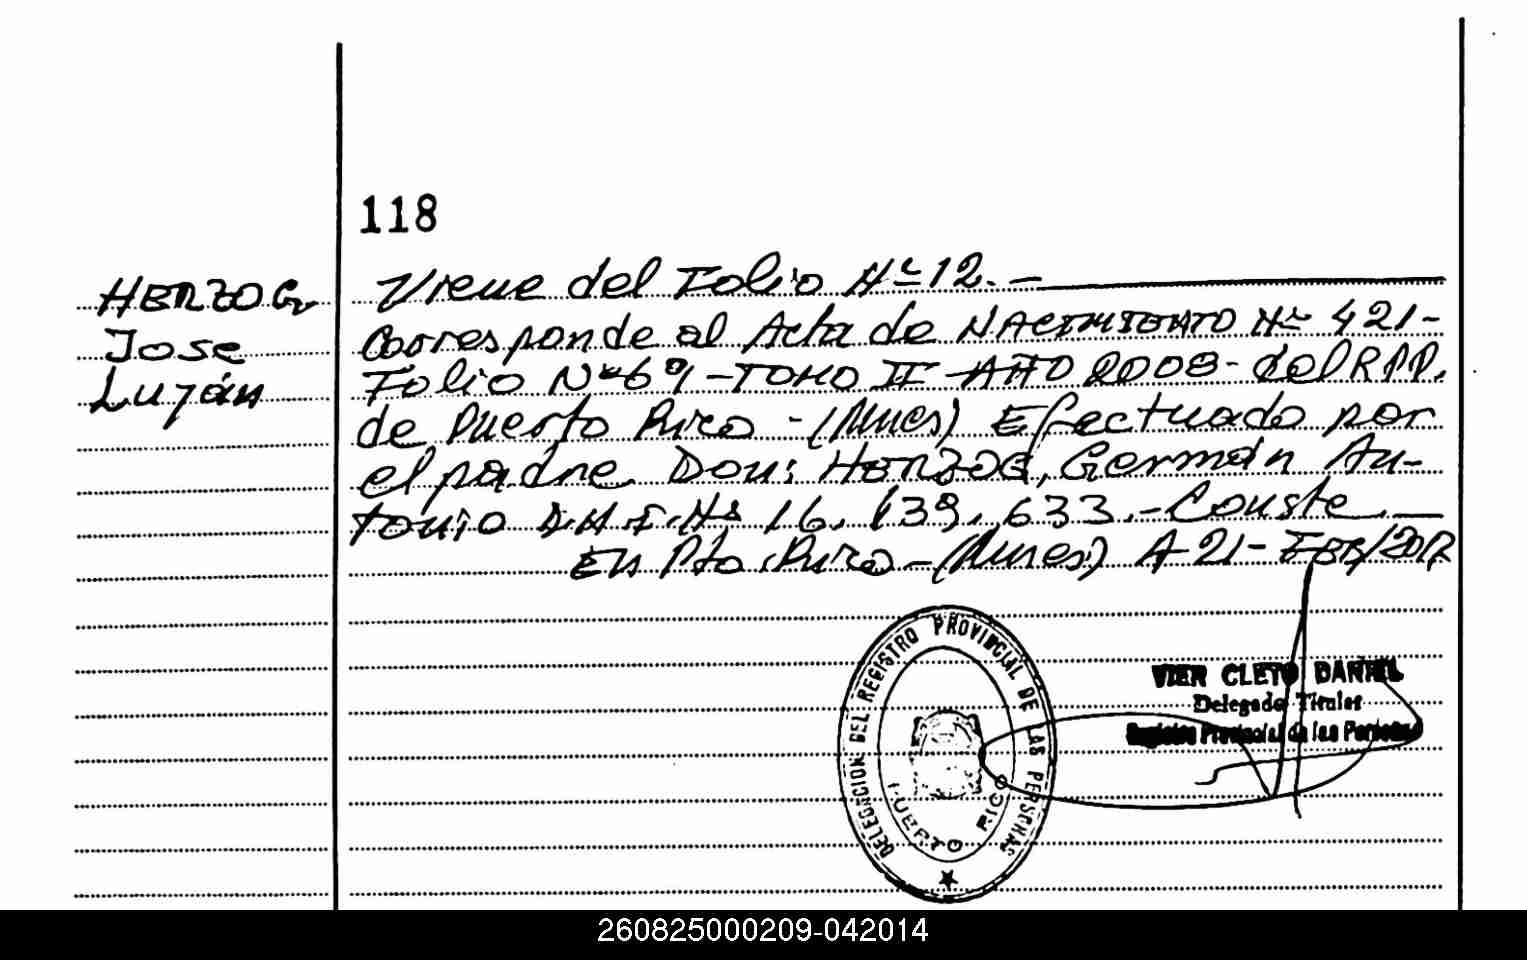 118
HERZOG
Jose
Luján
Viene del Folio Nº 12.-
Corresponde al Acta de NACIMIENTO Nº 421-
Folio Nº 69 - TOMO II - AÑO 2008 - del R.P.P.
de Puerto Rico - (Mnes) Efectuado por
el padre Don: HERZOG, Germán An-
tonio D.N.I. Nº 16.639.633.- Conste.-
En Pto Rico - (Mnes) A 21- FEB/2012
DELEGACION DEL REGISTRO PROVINCIAL DE LAS PERSONAS
PUERTO RICO
VIER CLETO DANIEL
Delegado Titular
Registro Provincial de las Personas
260825000209-042014